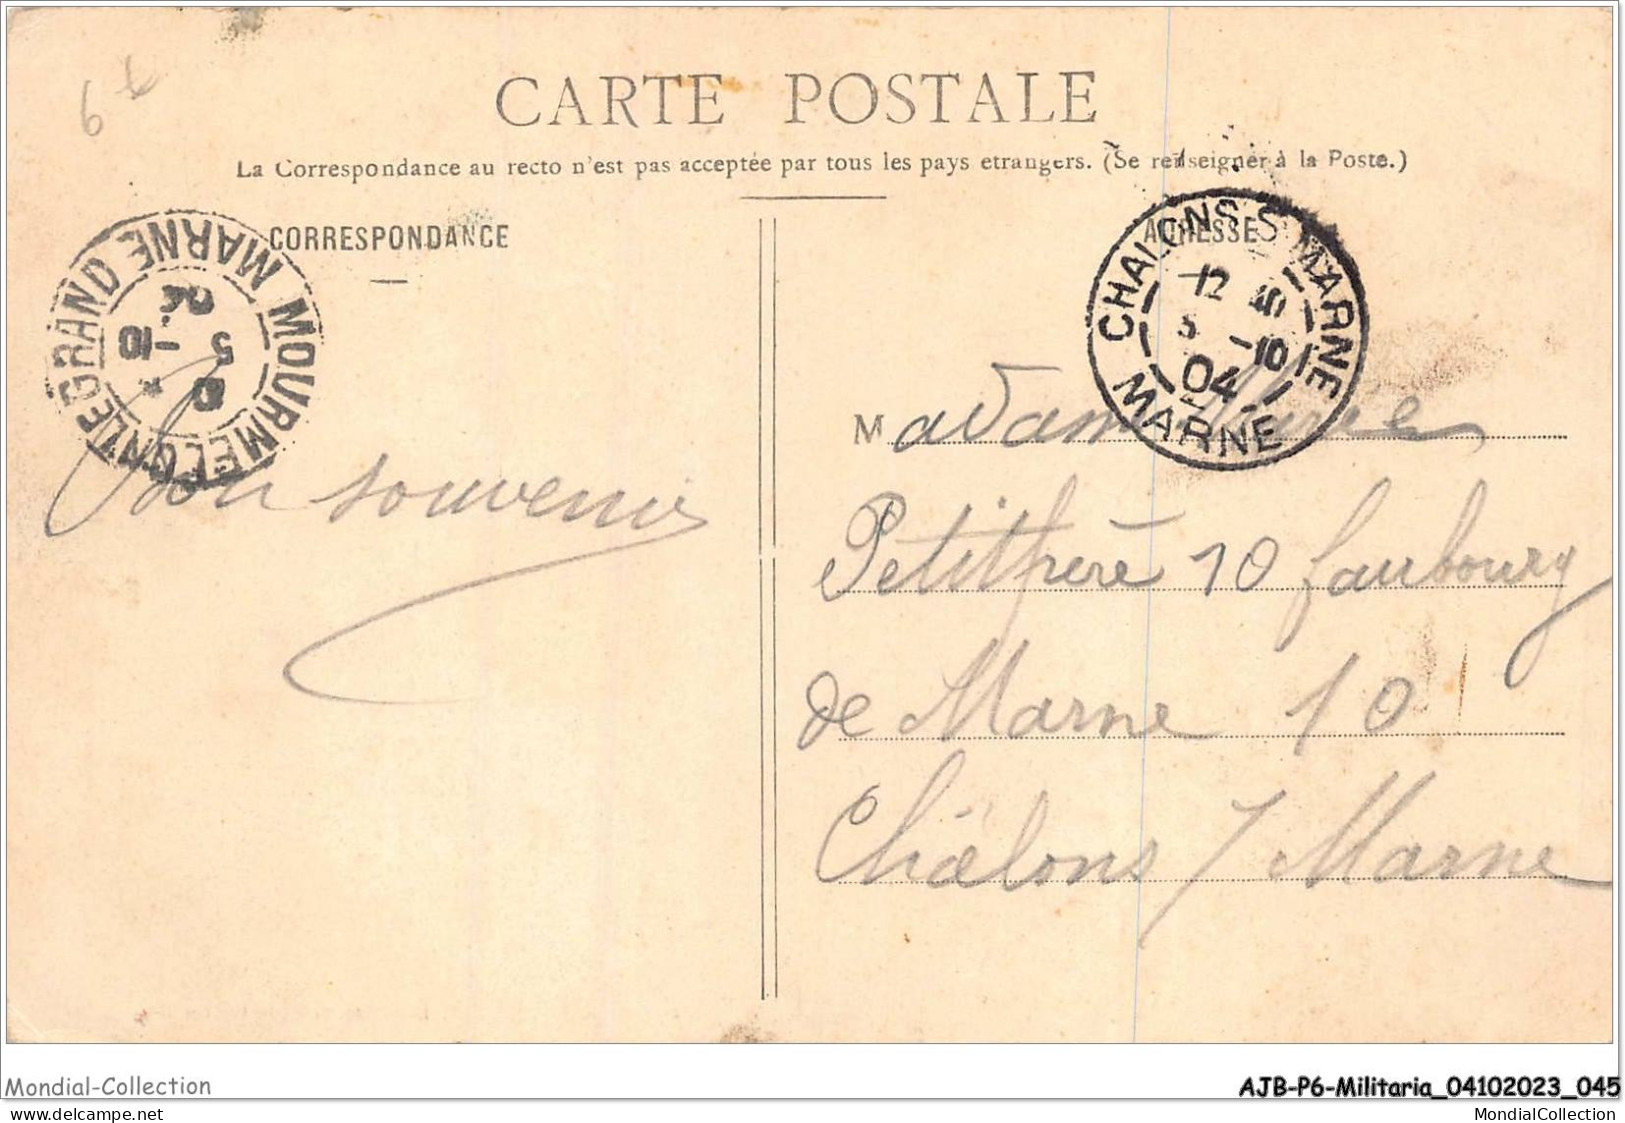 6 €
CARTE POSTALE
La Correspondance au recto n'est pas acceptée par tous les pays etrangers. (Se renseigner à la Poste.)
CORRESPONDANCE
ADRESSE
MOURMELON LE GRAND MARNE
5 -10
04
CHALONS S MARNE
12 40
5 -10
04
MARNE
bon souvenir
Madame Marie
Petitfrère 10 faubourg
de Marne 10
Châlons / Marne
Mondial-Collection
AJB-P6-Militaria_04102023_045
delcampe.net
MondialCollection